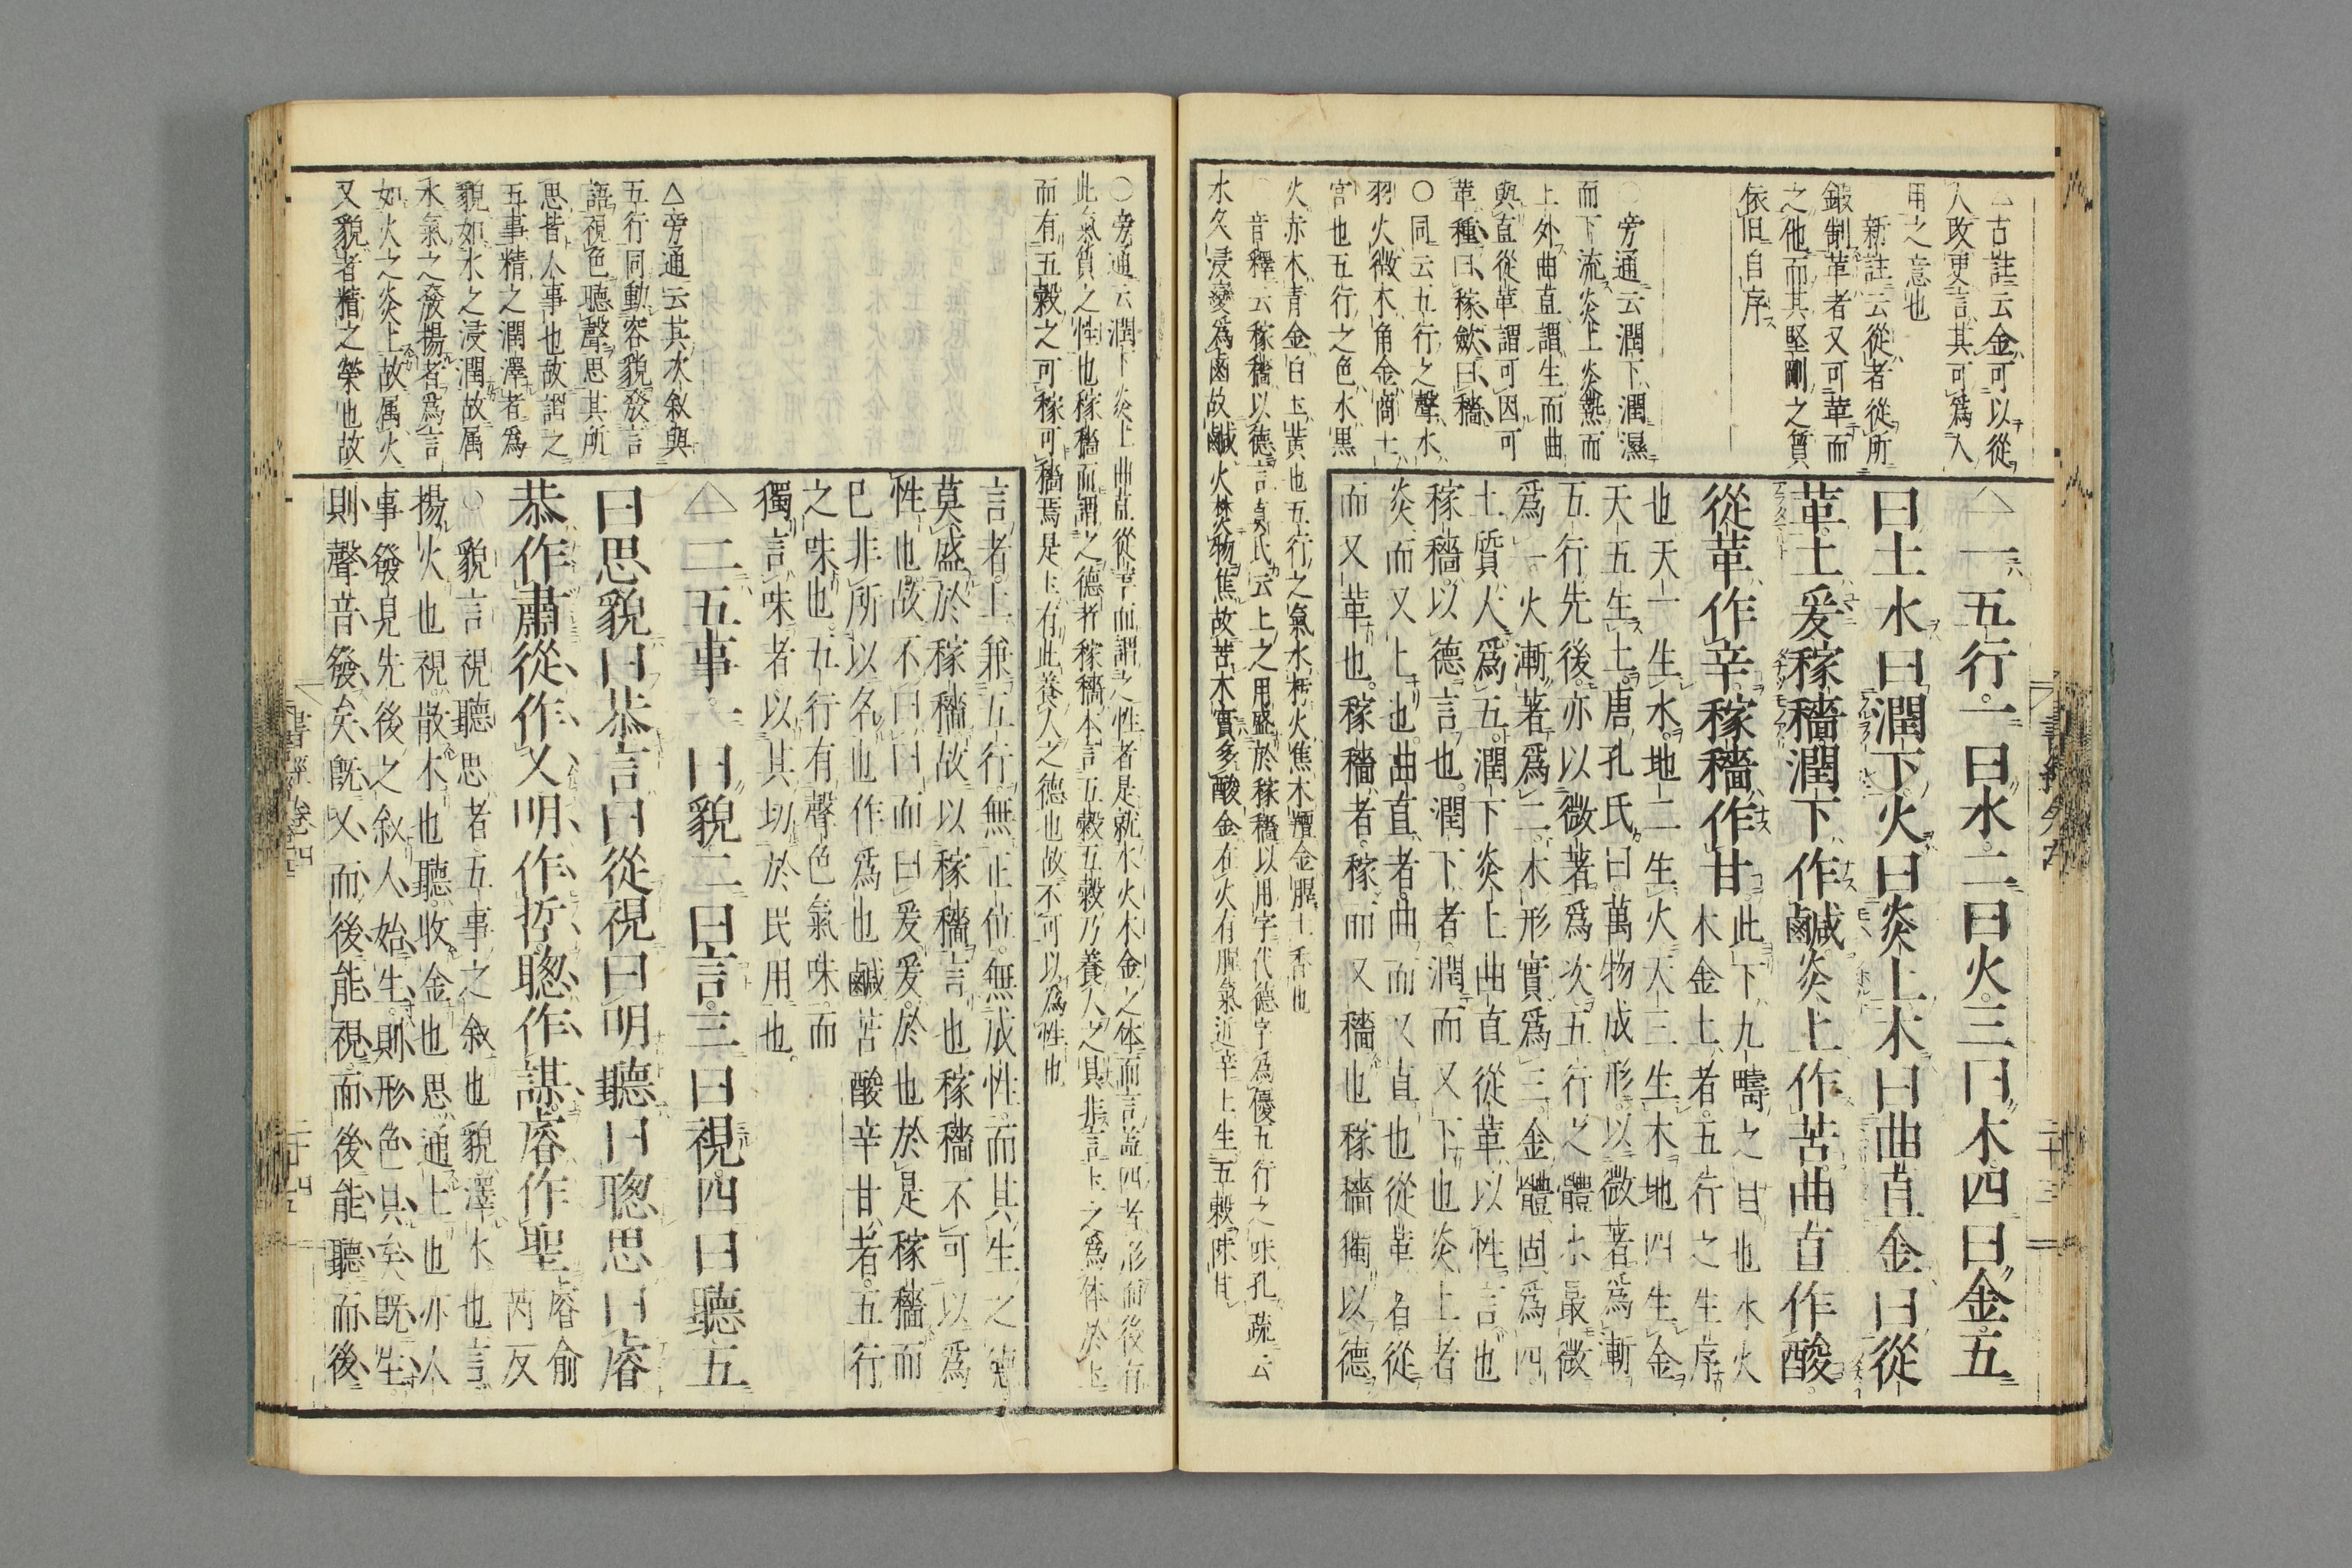 △古註云金可以從
人改更言其可爲人
用之意也
新註云從者從所
鍛制革者又可革而
之他而其堅剛之質
依旧自序
○旁通云潤下潤濕
而下流炎上炎熱而
上外曲直謂生而曲
與直從革謂可因可
革種曰稼歛曰穡
○同云五行之聲水
羽火徵木角金商土
宮也五行之色水黒
火赤木青金白土黄也五行之氣水朽火焦木羶金腥土香也
○音釋云稼穡以德言眞氏云土之用盛於稼穡以用字代德字爲優五行之味孔疏云
水久浸変爲鹵故鹹火焚物焦故苦木實多酸金在火有腥氣近辛土生五穀味甘
△一五行一曰水二曰火三曰木四曰金五
曰土水曰潤下火曰炎上木曰曲直金曰從
革土爰稼穡潤下作鹹炎上作苦曲直作酸
從革作辛稼穡作甘此下九疇之目也水火
木金土者五行之生序
也天一生水地二生火天三生木地四生金
天五生土唐孔氏曰萬物成形以微著爲漸
五行先後亦以微著爲次五行之體水最微
爲一火漸著爲二木形實爲三金體固爲四
土質大爲五潤下炎上曲直從革以性言也
稼穡以德言也潤下者潤而又下也炎上者
炎而又上也曲直者曲而又直也從革者從
而又革也稼穡者稼而又穡也稼穡獨以德
○旁通云潤下炎上曲直從革而謂之性者是就水火木金之体而言盖四者形而後有
此氣質之性也稼穡而謂之德者稼穡本言五穀五穀乃養人之具非言土之爲体於土
而有五穀之可稼可穡焉是土有此養人之德也故不可以爲性也
△旁通云其次敘與
五行同動容貌發言
語視色聽聲思其所
思皆人事也故謂之
五事精之潤澤者爲
貌如水之浸潤故属
水氣之發揚者爲言
如火之炎上故属火
又貌者精之榮也故
言者土兼五行無正位無成性而其生之德
莫盛於稼穡故以稼穡言也稼穡不可以爲
性也故不曰曰而曰爰爰於也於是稼穡而
已非所以名也作爲也鹹苦酸辛甘者五行
之味也五行有聲色氣味而
獨言味者以其切於民用也
△二五事一曰貌二曰言三曰視四曰聽五
曰思貌曰恭言曰從視曰明聽曰聰思曰睿
恭作肅從作乂明作哲聰作謀睿作聖睿俞
芮反
○貌言視聽思者五事之敘也貌澤水也言
揚火也視散木也聽收金也思通土也亦人
事發見先後之敘人始生則形色具矣既生
則聲音發矣既又而後能視而後能聽而後
書經卷四
二十四
二十三